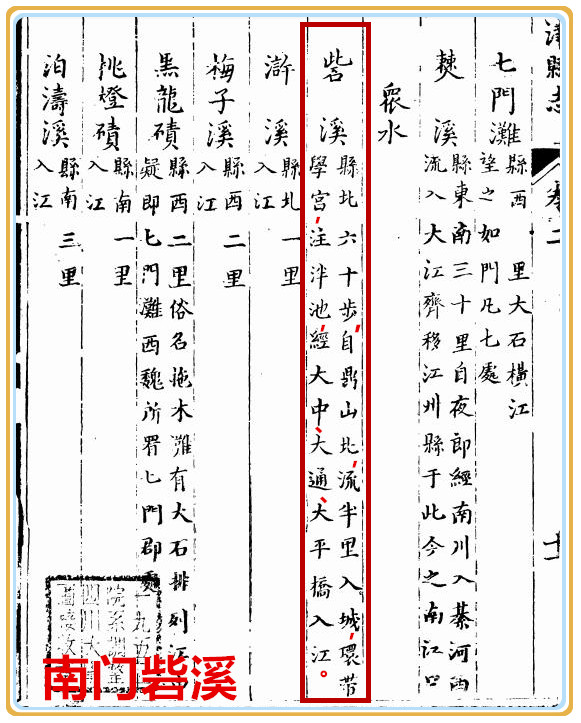 津縣志
卷二
十一
七門灘
縣西 里大石橫江
望之如門凡七處
僰溪
縣東南三十里自夜郎經南川入綦河西
流入大江齊移江州縣于此今之南江口
眾水
砦溪
縣北六十步,自鼎山北,流半里入城,環帶
學宮,注泮池,經大中、大通、大平橋入江。
滸溪
縣北一里
入江
梅子溪
縣西二里
入江
黑龍磧
縣西二里俗名拖木灘有大石排列江
疑即七門灘西魏所署七門郡
挑燈磧
縣南一里
入江
泊濤溪
縣南三里
入江
一九五
院系調整
四川大
南门砦溪